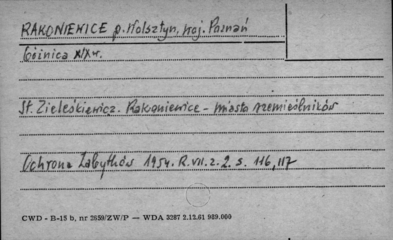 RAKONIEWICE p. Wolsztyn, woj. Poznań
bóżnica XIX w.
St. Zieleśkiewicz. Rakoniewice - miasto rzemieślników
Ochrona Zabytków 1954. R. VII. z. 2. s. 116, 117
CWD - B-15 b, nr 2859/ZW/P — WDA 3287 2.12.61 989.000